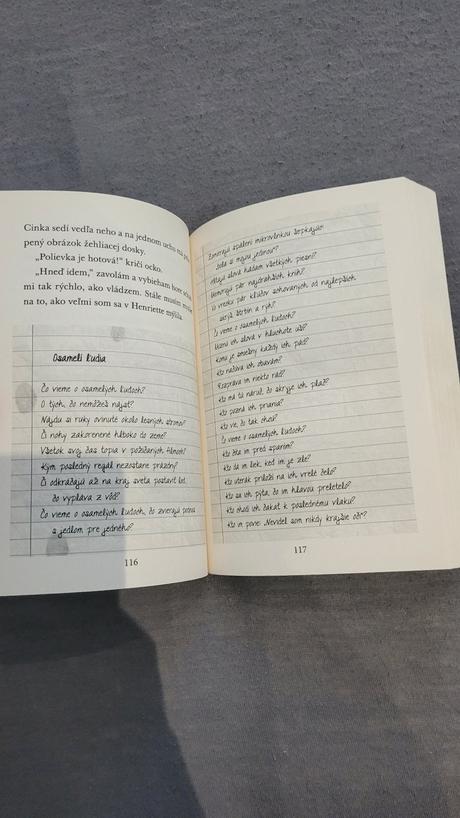 Cinka sedí vedľa neho a na jednom uchu má
pený obrázok žehliacej dosky.
„Polievka je hotová!“ kričí ocko.
„Hneď idem,“ zavolám a vybieham hore
mi tak rýchlo, ako vládzem. Stále musím
na to, ako veľmi som sa v Henriette mýlila.
Osamelí ľudia
Čo vieme o osamelých ľuďoch?
O tých, čo nemôžeš nájsť?
Nájdu si ruky ovinuté okolo lesných stromov?
Či nohy zakorenené hlboko do zeme?
Všetok svoj čas topia v požičaných filmoch?
Kým posledný regál nezostane prázdny?
Či odkráčajú až na kraj sveta postaviť loď,
čo vypláva z vôd?
Čo vieme o osamelých ľuďoch, čo zvierajú
s jedlom pre jedného?
116
Zomierajú spálení mikrovlnkou šepkajúc:
bola si mojou jedinou?
slová hádam všetkých piesní?
pár najdrahších kníh?
vrecku pár kľúčov schovaných od najlepších
čŕt a rýh?
Čo vieme o osamelých ľuďoch?
ich slová v hluchote uší?
Komu je smiešny každý ich pád?
Kto načúva ich obavám?
Rozpráva im niekto rád?
Kto má tú náruč, čo skryje ich plač?
Kto pozná ich priania?
Kto vie, čo tak chcú?
Čo vieme o osamelých ľuďoch?
Kto číta im pred spaním?
Kto dá im liek, keď im je zle?
Kto uterák priloží na ich vrelé čelo?
Kto sa ich pýta, čo im hlavou preletelo?
Kto chodí ich čakať k poslednému vlaku?
Kto im povie: Nevidel som nikdy krajšie oči?
117